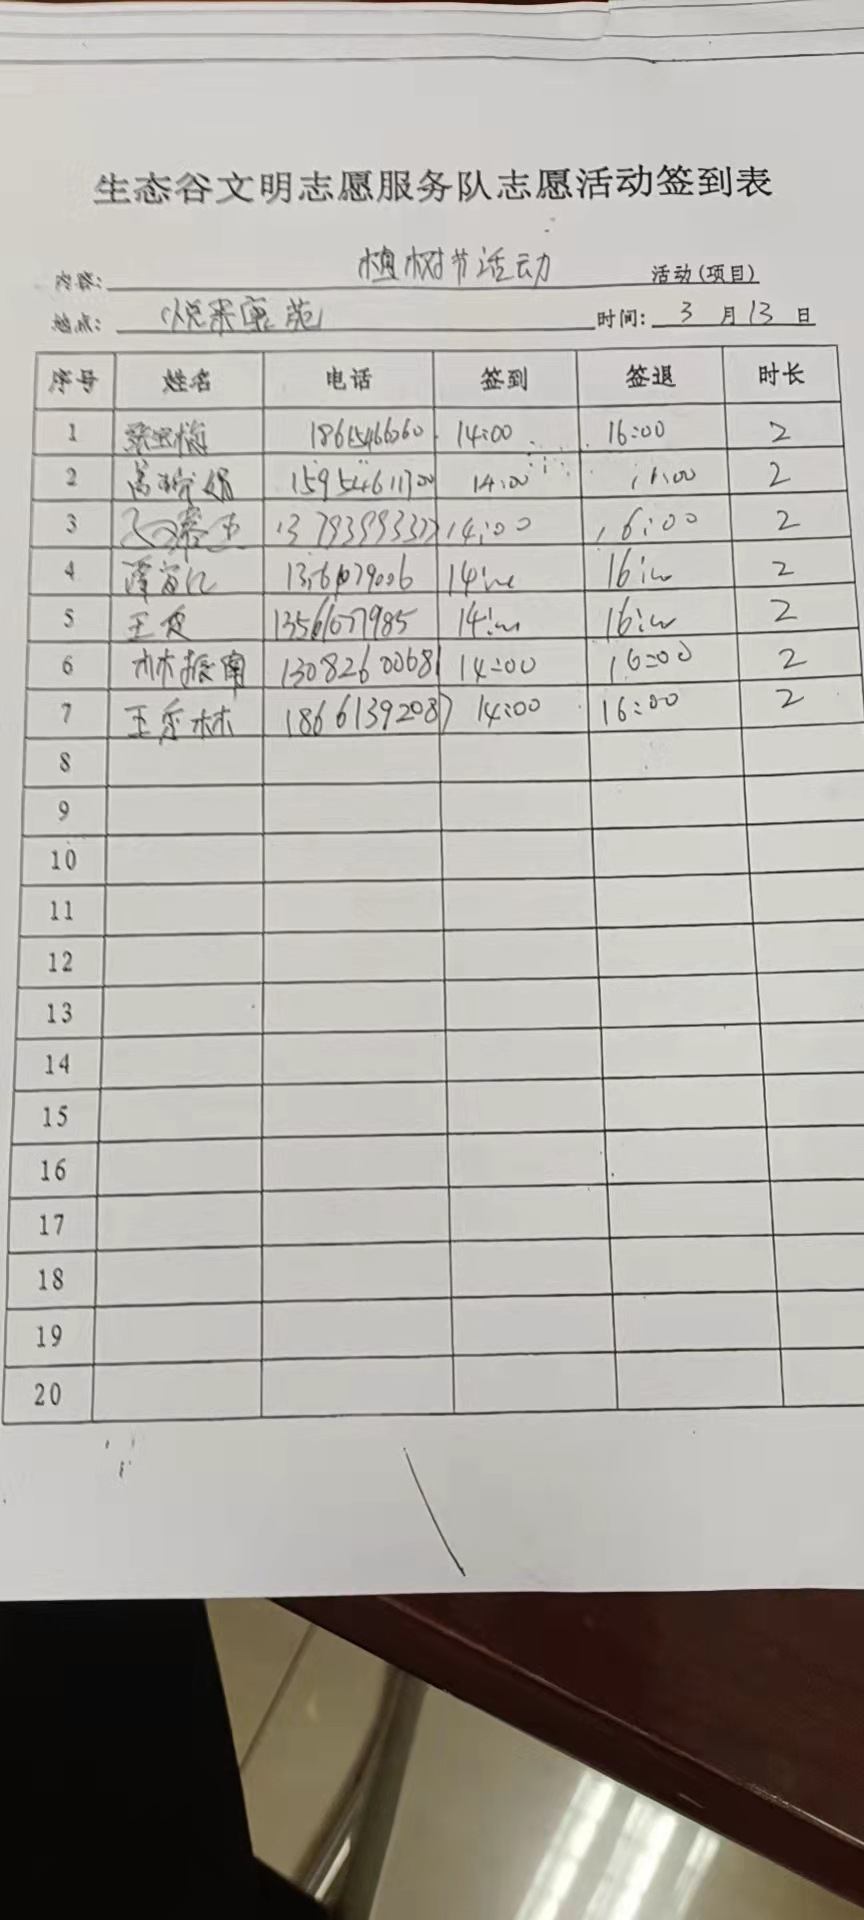 生态谷文明志愿服务队志愿活动签到表
内容: 植树节活动 活动(项目)
地点: 悦来康苑 时间: 3 月 13 日
序号 姓名 电话 签到 签退 时长
1 18615466060 14:00 16:00 2
2 15954611700 14:00 16:00 2
3 14:00 16:00 2
4 14:00 16:00 2
5 王 14:00 16:00 2
6 林振南 13082600681 14:00 16:00 2
7 王秀林 18661392087 14:00 16:00 2
8
9
10
11
12
13
14
15
16
17
18
19
20